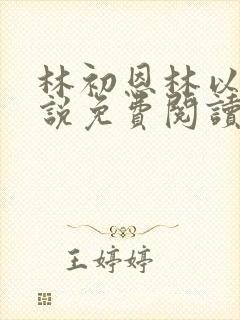 林初恩林以
說免費閱讀
王婷婷